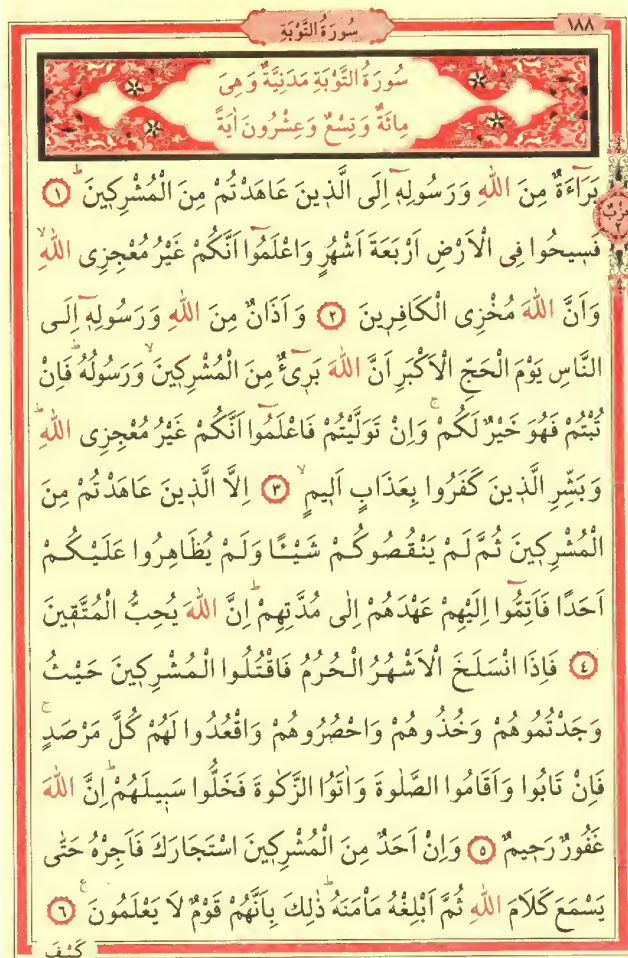 ١٨٨
سُورَةُ التَّوْبَةِ
سُورَةُ التَّوْبَةِ مَدَنِيَّةٌ وَهِىَ
مِائَةٌ وَتِسْعٌ وَعِشْرُونَ اٰيَةً
بَرَٓاءَةٌ مِنَ اللّٰهِ وَرَسُولِهٖٓ اِلَى الَّذٖينَ عَاهَدْتُمْ مِنَ الْمُشْرِكٖينَؕ ١
حِزْبٌ ٢
فَسٖيحُوا فِى الْاَرْضِ اَرْبَعَةَ اَشْهُرٍ وَاعْلَمُٓوا اَنَّكُمْ غَيْرُ مُعْجِزِى اللّٰهِۙ
وَاَنَّ اللّٰهَ مُخْزِى الْكَافِرٖينَ ٢ وَاَذَانٌ مِنَ اللّٰهِ وَرَسُولِهٖٓ اِلَى
النَّاسِ يَوْمَ الْحَجِّ الْاَكْبَرِ اَنَّ اللّٰهَ بَرٖٓىءٌ مِنَ الْمُشْرِكٖينَۙ وَرَسُولُهُؕ فَاِنْ
تُبْتُمْ فَهُوَ خَيْرٌ لَكُمْۚ وَاِنْ تَوَلَّيْتُمْ فَاعْلَمُٓوا اَنَّكُمْ غَيْرُ مُعْجِزِى اللّٰهِؕ
وَبَشِّرِ الَّذٖينَ كَفَرُوا بِعَذَابٍ اَلٖيمٍۙ ٣ اِلَّا الَّذٖينَ عَاهَدْتُمْ مِنَ
الْمُشْرِكٖينَ ثُمَّ لَمْ يَنْقُصُوكُمْ شَيْـًٔا وَلَمْ يُظَاهِرُوا عَلَيْكُمْ
اَحَدًا فَاَتِمُّٓوا اِلَيْهِمْ عَهْدَهُمْ اِلٰى مُدَّتِهِمْؕ اِنَّ اللّٰهَ يُحِبُّ الْمُتَّقٖينَ
٤ فَاِذَا انْسَلَخَ الْاَشْهُرُ الْحُرُمُ فَاقْتُلُوا الْمُشْرِكٖينَ حَيْثُ
وَجَدْتُمُوهُمْ وَخُذُوهُمْ وَاحْصُرُوهُمْ وَاقْعُدُوا لَهُمْ كُلَّ مَرْصَدٍۚ
فَاِنْ تَابُوا وَاَقَامُوا الصَّلٰوةَ وَاٰتَوُا الزَّكٰوةَ فَخَلُّوا سَبٖيلَهُمْؕ اِنَّ اللّٰهَ
غَفُورٌ رَحٖيمٌ ٥ وَاِنْ اَحَدٌ مِنَ الْمُشْرِكٖينَ اسْتَجَارَكَ فَاَجِرْهُ حَتّٰى
يَسْمَعَ كَلَامَ اللّٰهِ ثُمَّ اَبْلِغْهُ مَاْمَنَهُؕ ذٰلِكَ بِاَنَّهُمْ قَوْمٌ لَا يَعْلَمُونَ ࣖ ٦
كَيْفَ